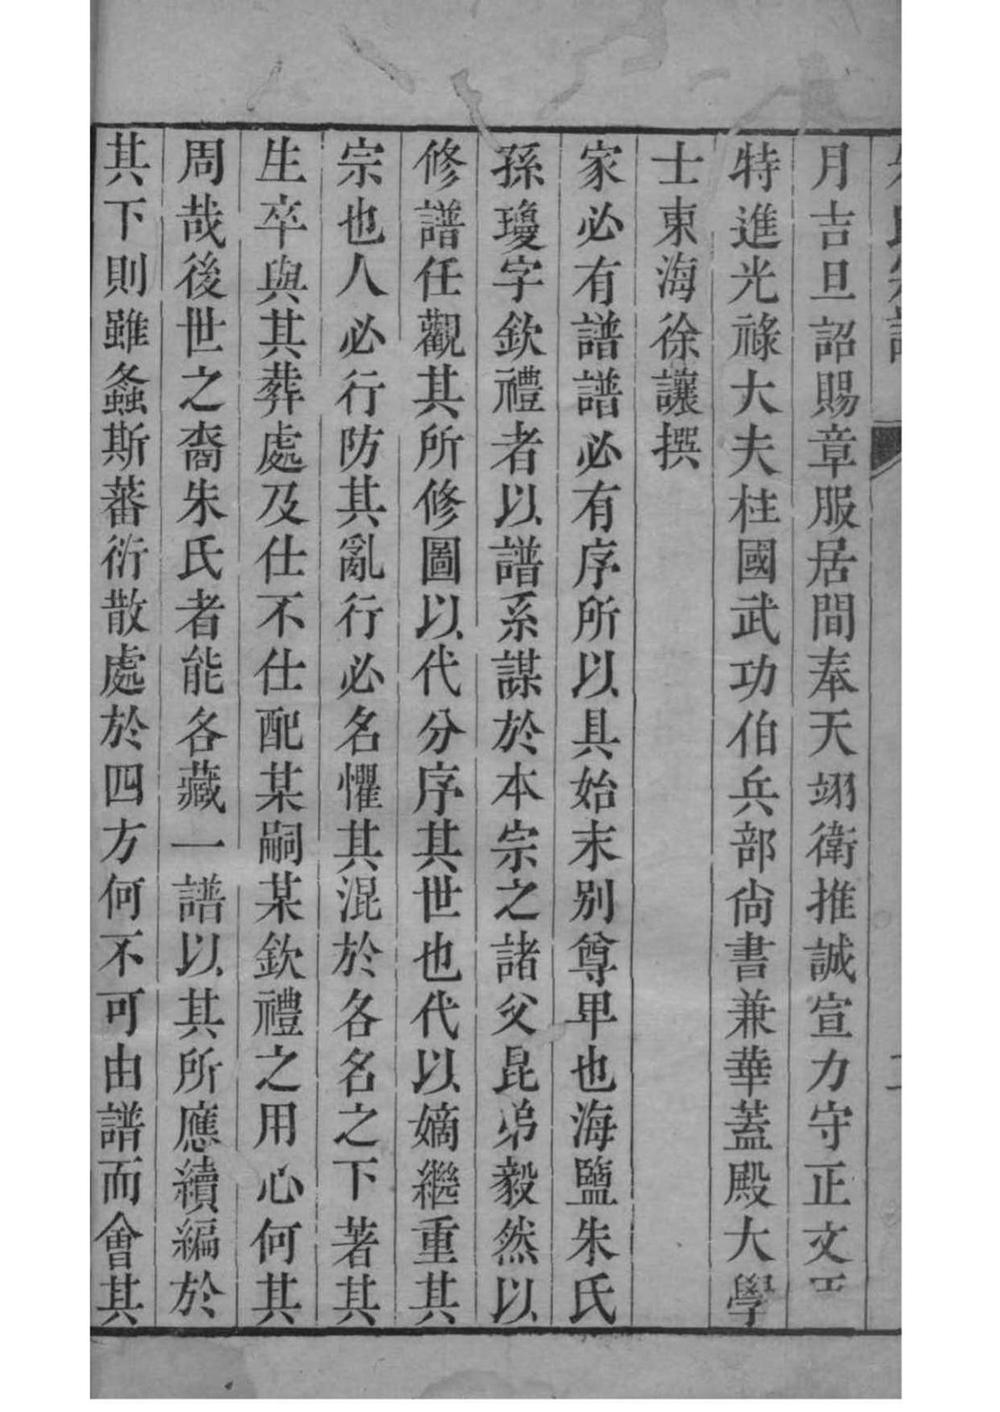 月吉旦詔賜章服居間奉天翊衛推誠宣力守正文
特進光祿大夫柱國武功伯兵部尙書兼華蓋殿大學
士東海徐讓撰
家必有譜譜必有序所以具始末別尊卑也海鹽朱氏
孫瓊字欽禮者以譜系謀於本宗之諸父昆弟毅然以
修譜任觀其所修圖以代分序其世也代以嫡繼重其
宗也人必行防其亂行必名懼其混於各名之下著其
生卒與其葬處及仕不仕配某嗣某欽禮之用心何其
周哉後世之裔朱氏者能各藏一譜以其所應續編於
其下則雖螽斯蕃衍散處於四方何不可由譜而會其